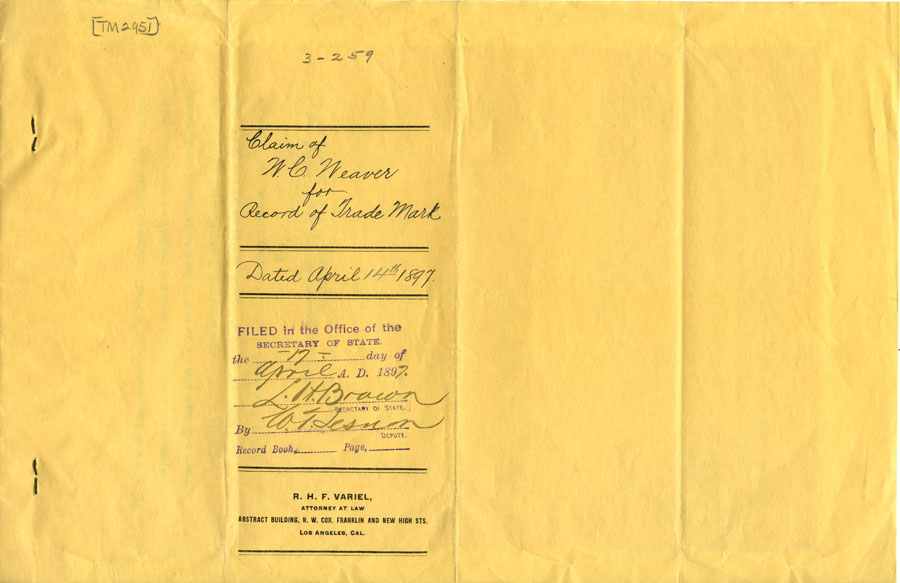 [TM2951]
3-259
Claim of
W. C. Weaver
for
Record of Trade Mark
Dated April 14th 1897.
FILED in the Office of the
SECRETARY OF STATE.
the -17- day of
April A. D. 1897.
L. H. Brown
SECRETARY OF STATE.
By W. T.
DEPUTY.
Record Book, Page,
R. H. F. VARIEL,
ATTORNEY AT LAW
ABSTRACT BUILDING, N. W. COR. FRANKLIN AND NEW HIGH STS.
LOS ANGELES, CAL.